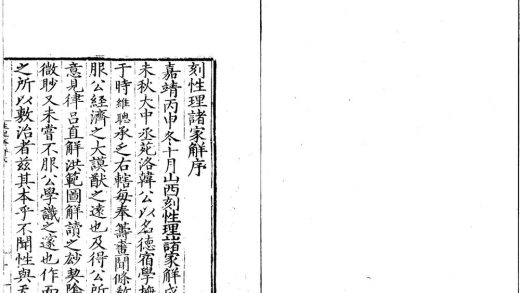 刻性理諸家解序
嘉靖丙申冬十月山西刻性理諸家解
未秋大中丞苑洛韓公以名德宿學撫
于時維聰承乏右轄每奉籌畫聞條教
服公經濟之大謨猷之遠也及得公所
意見律呂直解洪範圖解讀之玅契陰
微眇又未嘗不服公學識之邃也作而
之所以敷治者茲其本乎不聞性與天